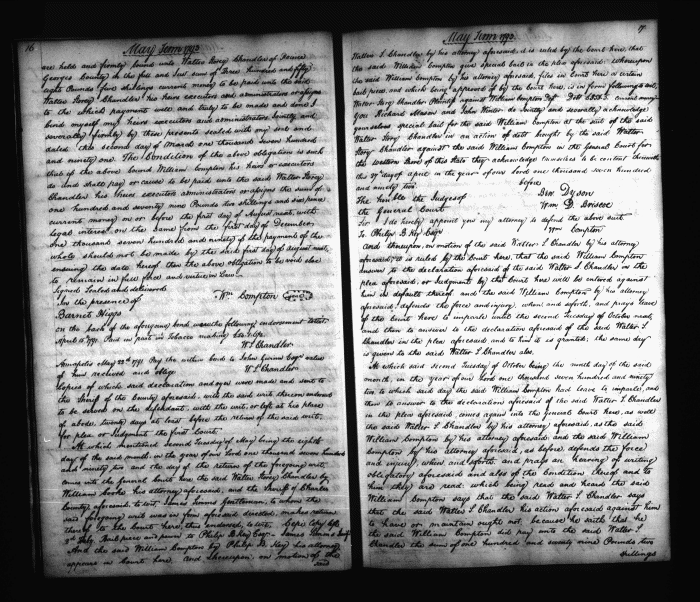 16
May Term 1793
are held and firmly bound unto Walter Storey Chandler of Prince
Georges County in the full and Just sum of Three hundred and fifty
eight Pounds five shillings current money to be paid unto the said
Walter Storey Chandler his heirs executors and administrators or assigns
to the which payment well and truly to be made and done I
bind myself my heirs executors and administrators jointly and
severally firmly by these presents sealed with my seal and
dated this second day of March one thousand seven hundred
and ninety one. The Condition of the above obligation is such
that if the above bound William Compton his heirs or executors
do and shall pay or cause to be paid unto the said Walter Storey
Chandler his heirs executors administrators or assigns the sum of
one hundred and seventy nine Pounds two shillings and six pence
current money on or before the first day of August next, with
legal interest on the same from the first day of December
one thousand seven hundred and ninety if the payment of the
whole should not be made by the said first day of August next,
ensuing the date hereof then the above obligation to be void else
to remain in full force and virtue in Law
Signed Sealed and delivered
In the presence of
Wm Compton
Barnet Higgs
on the back of the aforegoing bond was the following endorsement to wit
April 15 1791. Paid in part in Tobacco making
W S Chandler
Annapolis May 22nd 1791 Pay the within bond to John Gwinn Esqr value
of him received
W S Chandler
Copies of which said declaration and were made and sent to
the Sheriff of the County aforesaid, with the said writ thereon endorsed
to be served on the defendant, with the writ, or left at his place
of abode, twenty days at least before the return of the said writ,
for plea or Judgment the first Court
At which mentioned second Tuesday of May being the eighth
day of the said month in the year of our lord one thousand seven hundred
and ninety two and the day of the return of the foregoing writ
comes into the general Court here the said Walter Storey Chandler by
William Cooke his attorney aforesaid, and the Sheriff of Charles
County aforesaid to wit James Gentleman to whom the
said foregoing writ was in form aforesaid directed, makes return
thereof to the Court here, thus endorsed, to wit, Cepi Copy left
3d July Bail piece and pawn to Philip B Key Esqr James Sheriff
And the said William Compton by Philip B. Key his attorney
appears in Court here, and thereupon on motion of the
said
17
May Term 1793
Walter S Chandler by his attorney aforesaid it is ruled by the Court here, that
the said William Compton give special bail in the plea aforesaid, whereupon
the said William Compton by his attorney aforesaid, files in Court here a certain
bail piece, and which being approved of by the Court here, is in form following to wit,
Walter Story Chandler Plaintiff against William Compton Deft
You Richard Mason and John Weaver do jointly and severally acknowledge
yourselves special bail for the said William Compton at the suit of the said
Walter Story Chandler in an action of debt brought by the said Walter
Story Chandler against the said William Compton in the general Court for
the western shore of this state they acknowledge themselves to be content therewith
this 27 day of April in the year of our lord one thousand seven hundred
and ninety two.
before
The honble the Judges of
Ben Dyson
the General Court
Wm D Briscoe
Sir I do hereby appoint you my attorney to defend the above suit
To Philip B Key Esqr
Wm Compton
And thereupon, on motion of the said Walter S Chandler by his attorney
aforesaid, it is ruled by the Court here, that the said William Compton
answer to the declaration aforesaid of the said Walter S Chandler in the
plea aforesaid, or Judgment by the Court here will be entered against
him in default thereof and the said William Compton by his attorney
aforesaid, defends the force and injury, when and soforth, and prays leave
of the Court here to imparle until the second Tuesday of October next,
and then to answer to the declaration aforesaid of the said Walter S
Chandler in the plea aforesaid and to him it is granted; the same day
is given to the said Walter S Chandler also.
At which said second Tuesday of October being the ninth day of the said
month, in the year of our lord one thousand seven hundred and ninety
two, to which said day the said William Compton had leave to imparle, and
then to answer to the declaration aforesaid of the said Walter S Chandler
in the plea aforesaid, comes again into the general Court here, as well
the said Walter S Chandler by his attorney aforesaid, as the said
William Compton by his attorney aforesaid, and the said William
Compton by his attorney aforesaid, as before defends the force
and injury, when and soforth, and prays an hearing of writing
obligatory aforesaid and also of the Condition thereof and to
him they are read which being read and heard the said
William Compton says that the said Walter S Chandler says
that the said Walter S Chandler his action aforesaid against him
to have or maintain ought not, because he saith that he
the said William Compton did pay unto the said Walter S
Chandler the sum of one hundred and seventy nine Pounds two
shillings